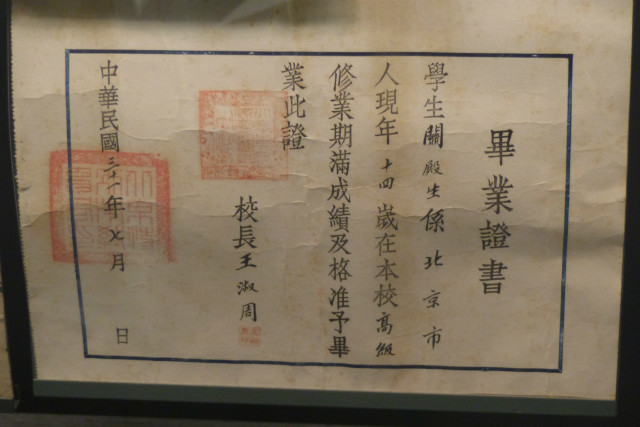 畢業證書
學生關殿生係北京市
人現年十四歲在本校高級
修業期滿成績及格准予畢
業此證
校長王淑周
中華民國三十一年七月 日